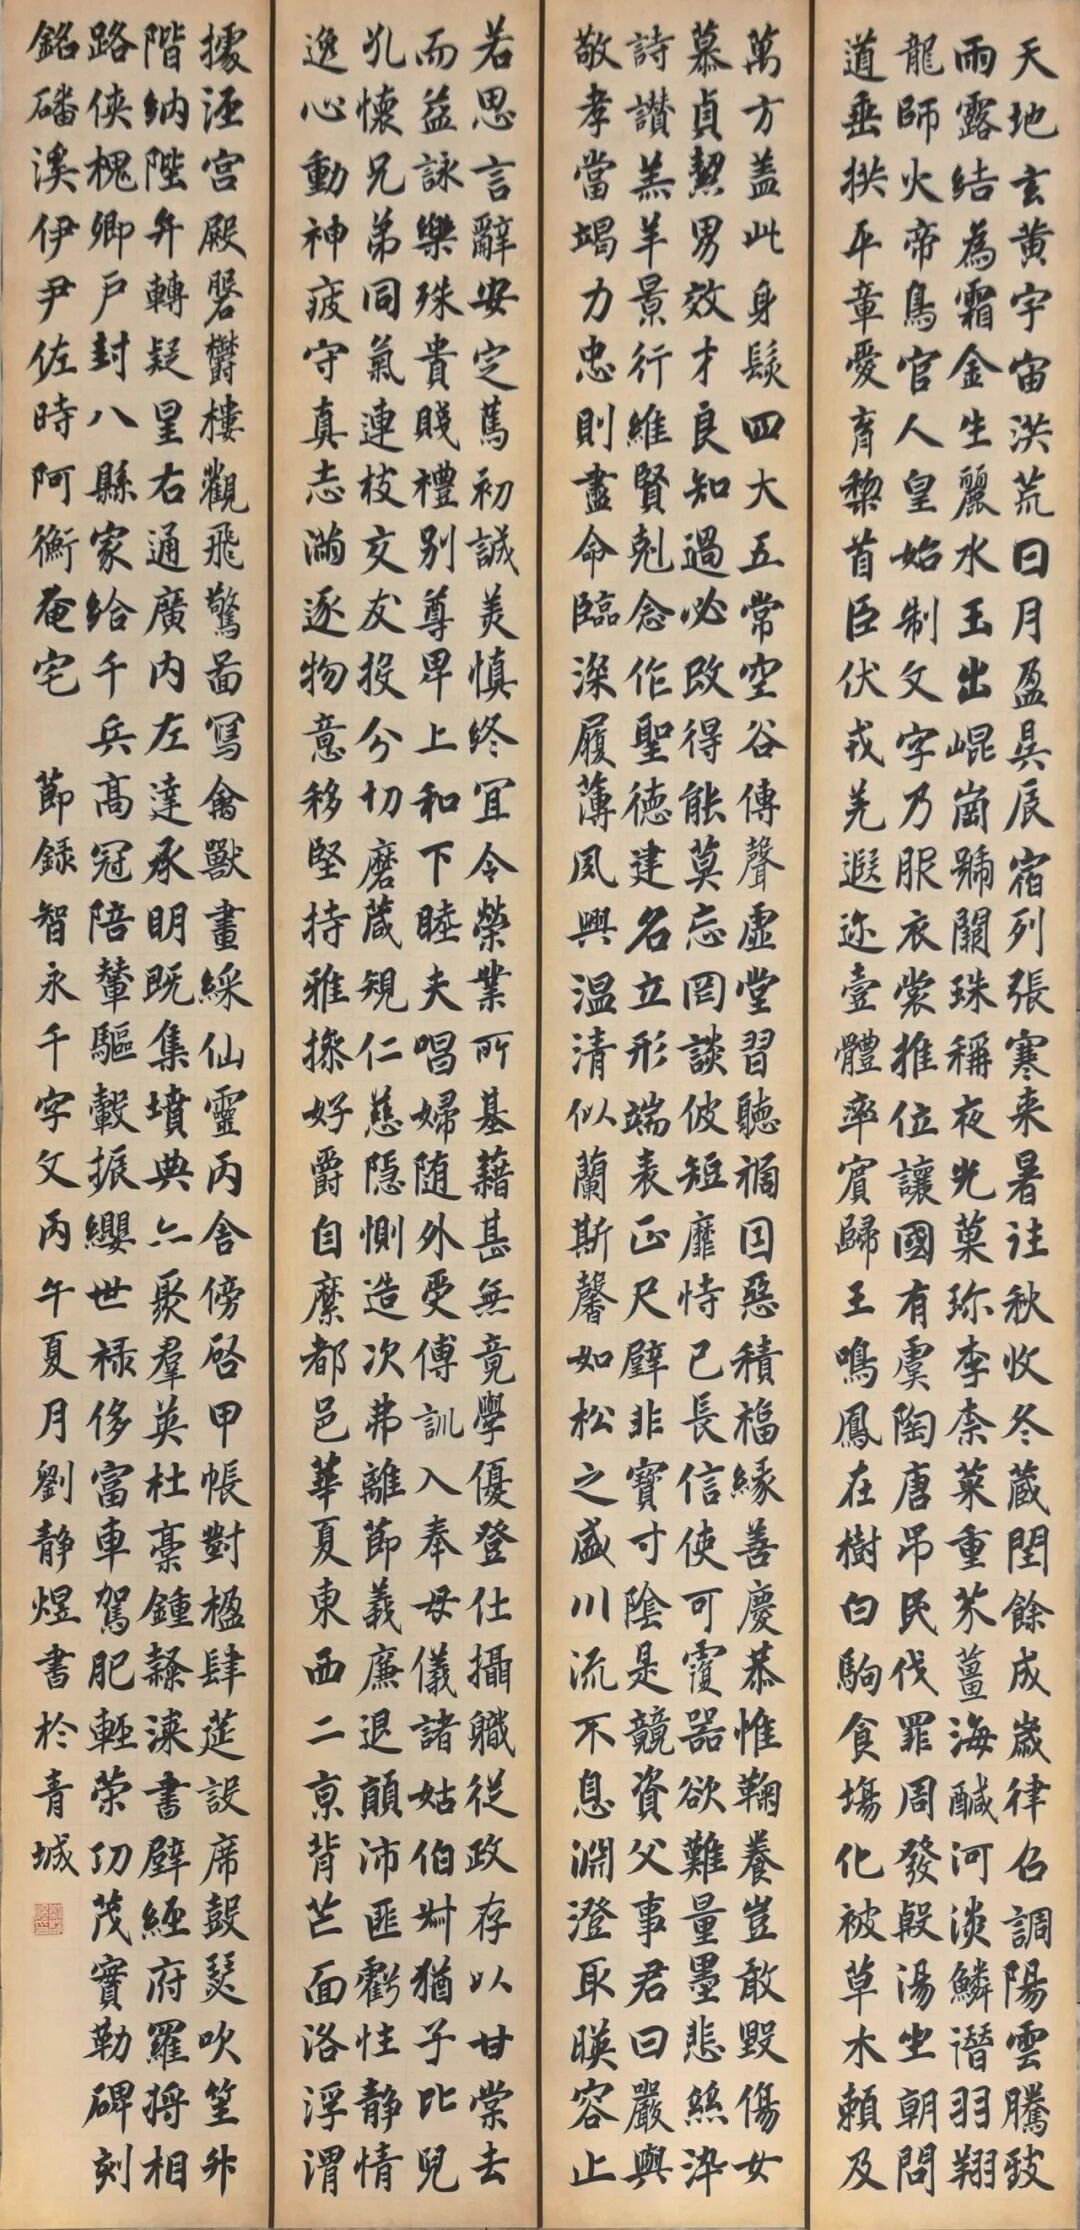 天地玄黃宇宙洪荒日月盈昃辰宿列張寒来暑往秋收冬蔵閏餘成嵗律召調陽雲騰致
雨露結為霜金生麗水玉出崐崗號關珠稱夜光菓珍李柰菜重芥薑海醎河淡鱗潛羽翔
龍師火帝鳥官人皇始制文字乃服衣裳推位讓國有虞陶唐吊民伐罪周發殷湯坐朝問
道垂拱平章愛育黎首臣伏戎羌遐迩壹體率賓歸王鳴鳳在樹白駒食場化被草木頼及
萬方盖此身髮四大五常空谷傳聲虛堂習聽禍因惡積福緣善慶恭惟鞠養豈敢毀傷女
慕貞絜男效才良知過必改得能莫忘罔談彼短靡恃己長信使可覆器欲難量墨悲絲染
詩讚羔羊景行維賢剋念作聖德建名立形端表正尺璧非寶寸陰是競資父事君曰嚴與
敬孝當竭力忠則盡命臨深履薄夙興温清似蘭斯馨如松之盛川流不息淵澄取暎容止
若思言辭安定篤初誠美慎終宜令榮業所基藉甚無竟學優登仕攝職從政存以甘棠去
而益詠樂殊貴賤禮別尊卑上和下睦夫唱婦随外受傅訓入奉母儀諸姑伯叔猶子比兒
孔懷兄弟同氣連枝交友投分切磨葴規仁慈隱惻造次弗離節義廉退顛沛匪虧性静情
逸心動神疲守真志滿逐物意移堅持雅操好爵自縻都邑華夏東西二京背芒面洛浮渭
據涇宮殿盤鬱樓觀飛驚圖寫禽獸畫綵仙靈丙舍傍啓甲帳對楹肆筵設席鼓瑟吹笙升
階納陛弁轉疑星右通廣内左達承明既集墳典亦聚羣英杜稾鍾隸漆書壁經府羅將相
路俠槐卿戶封八縣家給千兵高冠陪輦驅轂振纓世祿侈富車駕肥輕策功茂實勒碑刻
銘磻溪伊尹佐時阿衡奄宅 節録智永千字文丙午夏月劉静煜書於青城